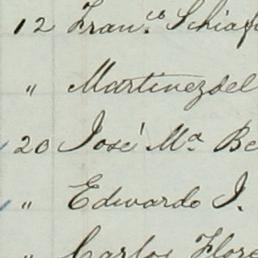 12 Fran.co Schiaf
" Martinez del
20 José Ma. Be
" Edwardo J.
" Carlos Flore